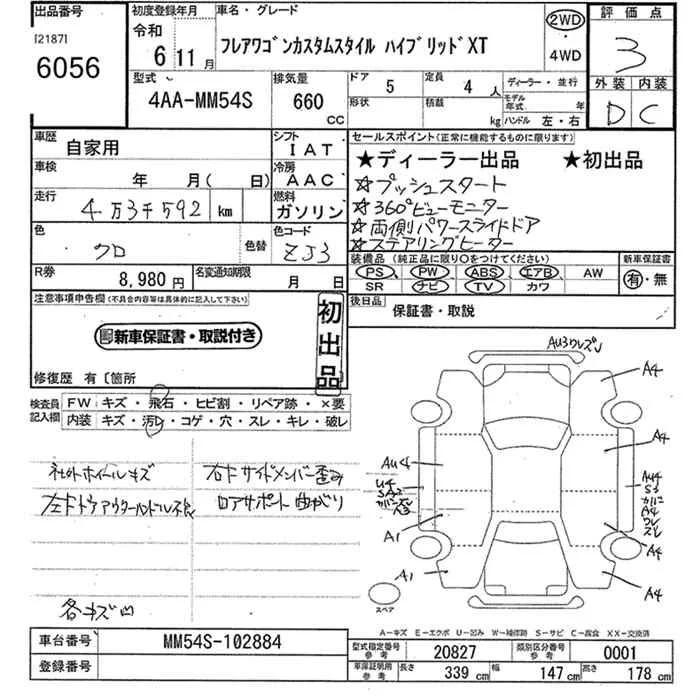 出品番号
[2187]
6056
初度登録年月
令和
6 11月
車名・グレード
フレアワゴンカスタムスタイル ハイブリッドXT
2WD
・
4WD
評価点
3
外装 内装
D C
型式
4AA-MM54S
排気量
660
CC
ドア 5
形状
定員 4 人
積載 kg
ディーラー・並行
モデル年式 年
ハンドル 左・右
車歴
自家用
シフト
IAT
車検
年 月( 日)
冷房
AAC
走行
4万3千592 km
燃料
ガソリン
色
クロ
色替
色コード
ZJ3
R券
8,980円
名変通知期限
月 日
セールスポイント(正常に機能するものに限ります)
★ディーラー出品 ★初出品
☆プッシュスタート
☆360°ビューモニター
☆両側パワースライドドア
☆ステアリングヒーター
装備品(純正品に限り○をつけてください)
PS PW ABS エアB AW
SR ナビ TV カワ
新車保証書
有・無
後日品
保証書・取説
注意事項申告欄(不具合内容等は具体的に記入して下さい)
新車保証書・取説付き
初出品
修復歴 有〔箇所
検査員記入欄
FW キズ・飛石・ヒビ割・リペア跡・×要
内装 キズ・汚レ・コゲ・穴・スレ・キレ・破レ
社外ホイールキズ
左ドアアウターハンドル不良
右ドサイドメンバー歪み
ロアサポート曲がり
各キズ凹
AU3ワレズレ
A4
A4
AU4
U4
A1
A1
AU4
S3
カバーA4
ワレ
ズレ
A4
A4
スペア
A-キズ E-エクボ U-凹み W-補修跡 S-サビ C-腐食 XX-交換済
車台番号
MM54S-102884
登録番号
型式指定番号
参考
20827
類別区分番号
参考
0001
車庫証明用
参考
長さ 339 cm
幅 147 cm
高さ 178 cm